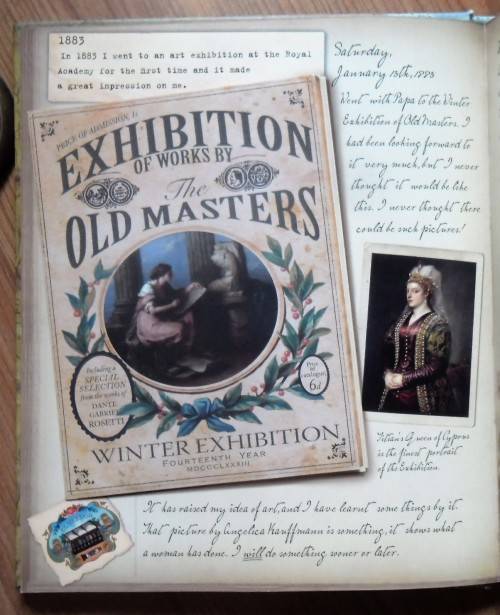 1883
In 1883 I went to an art exhibition at the Royal
Academy for the first time and it made
a great inpression on me.
Saturday,
January 13th, 1883
Went with Papa to the Winter
Exhibition of Old Masters. I
had been looking forward to
it very much, but I never
thought it would be like
this. I never thought there
could be such pictures!
PRICE OF ADMISSION, 1s
EXHIBITION
OF WORKS BY
The
OLD MASTERS
Including a
SPECIAL
SELECTION
from the works of
DANTE
GABRIEL
ROSETTI
Price
of
catalogues,
6d
WINTER EXHIBITION
FOURTEENTH YEAR
MDCCCLXXXIII
Titian's Queen of Cyprus
is the finest portrait
of the Exhibition.
It has raised my idea of art, and I have learnt some things by it.
That picture by Angelica Kauffmann is something, it shows what
a woman has done. I will do something sooner or later.